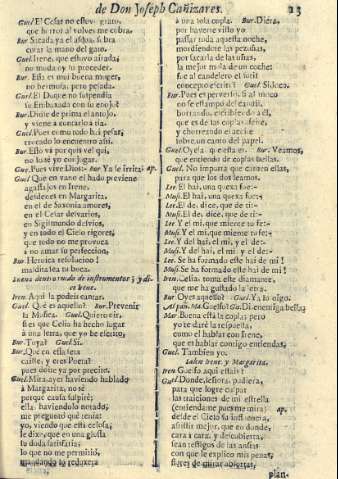 de Don Joseph Cañizares. 23
Guel. El Cesar no estuvo grato,
que hurrò al volverme cobra.
Bur.
curar la mano del gato.
Guel. Irene, que estuvo airada;
no mudò tu proceder.
Bur. Esta es mui buena muger,
no hermosa, pero pesada.
Guel. El Duque no suspendia
su Embaxada con su enojo?
Bur. Diòle de prima el antojo,
y viene a contarlo a tia.
Guel. Pues como todo ha pesar,
recelo lo encuentro assi.
Bur. Esto và por quis vel qui,
no lo sè yo conjugar.
Guel. Pues vive Dios:- Bur. Ya se irrita. ap.
Guel. Que en vano el hado previene
agassajos en Irene,
desdenes en Margarita,
en el de Saxonia amores,
en el Cesar desvarios,
en Sigismundo desvios,
y en todo el Cielo rigores,
que todo no me provoca
à no amar su perfeccion.
Bur. Heroica resolucion!
maldita sea tu boca.
Suena dentro ruido de instrumentos; y dice Irene.
Iren. Aqui la podeis cantar.
Guel. Què es aquello? Bur. Prevenir
la Musica. Guel. Quiero oir,
si es que Celia ha hecho lugar
à una letra, que yo he escrito.
Bur. Tuya? Guel. Si.
Bur. Que en esta seta
caiste, y eres Poeta?
pues dote ya por precito.
Guel. Mira, ayer haviendo hablado
à Margarita, no sè
porque causa suspirè;
ella haviendolo notado,
me preguntò què tenia:
yo, viendo que està celosa,
le dixe, que en una glossa
la duda satisfaria;
lo que no me permitiò,
mandando lo reduxera
à una sola copla. Bur. Diera,
por haverte visto yo
passar toda aquella noche,
mordiendote las pezuñas,
por sacarla de las uñas,
la mejor mula de un coche:
fue al candelero el sutil
concepto escrito? Guel. Si, loco.
Bur. Pues es perverso, si al moco
no se estampò del candil,
borrando, escribiendo à èl,
que es de las coplas
y chorreando el aceite
sobre un canto del papel.
Guel. Oyela, que esta es. Bur. Veamos,
que entiendo de coplas bellas.
Guel. No importa que entren ellas,
para que los dos leamos.
Lee. El hai, una quexa fue:-
Music. El hai, una quexa fue:-
Lee. El de, dice, que de ti:-
Music. El de, dice, que de ti:-
Lee. Y el mi, que miente tu fee:-
Music. Y el mi, que miente tu fee:-
Lee. Y del hai, el mi, y el de:-
Music. Y del hai, el mi, y el de:-
Lee. Se ha formado este hai de mi!
Music. Se ha formado este hai de mi!
Iren. Celia, toma este diamante,
que me ha gustado la letra.
Bur. Oyes aquello? Guel. Ya lo oigo.
Mar. Buena està la copla; pero
yo te darè la respuesta,
como el hablar con Irene,
que el hablar contigo entiendas.
Guel. Tambien yo.
Salen Irene, y Margarita.
Iren. Guelfo, aqui estais?
Guel. Donde, señora, pudiera,
para que logre culpar
las traiciones de mi estrella
(entiendeme pues me mira) ap.
desde el Cielo su influencia,
assistir mejor, que en donde,
cara à cara, y descubierta,
sean testigos las ansias
con que le explico mis penas,
fieros de mirar abiertas,
plan-